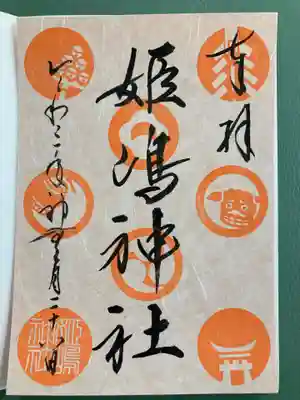 奉拝
姫嶋神社
令和三年神無月二十六日
姫嶋神社